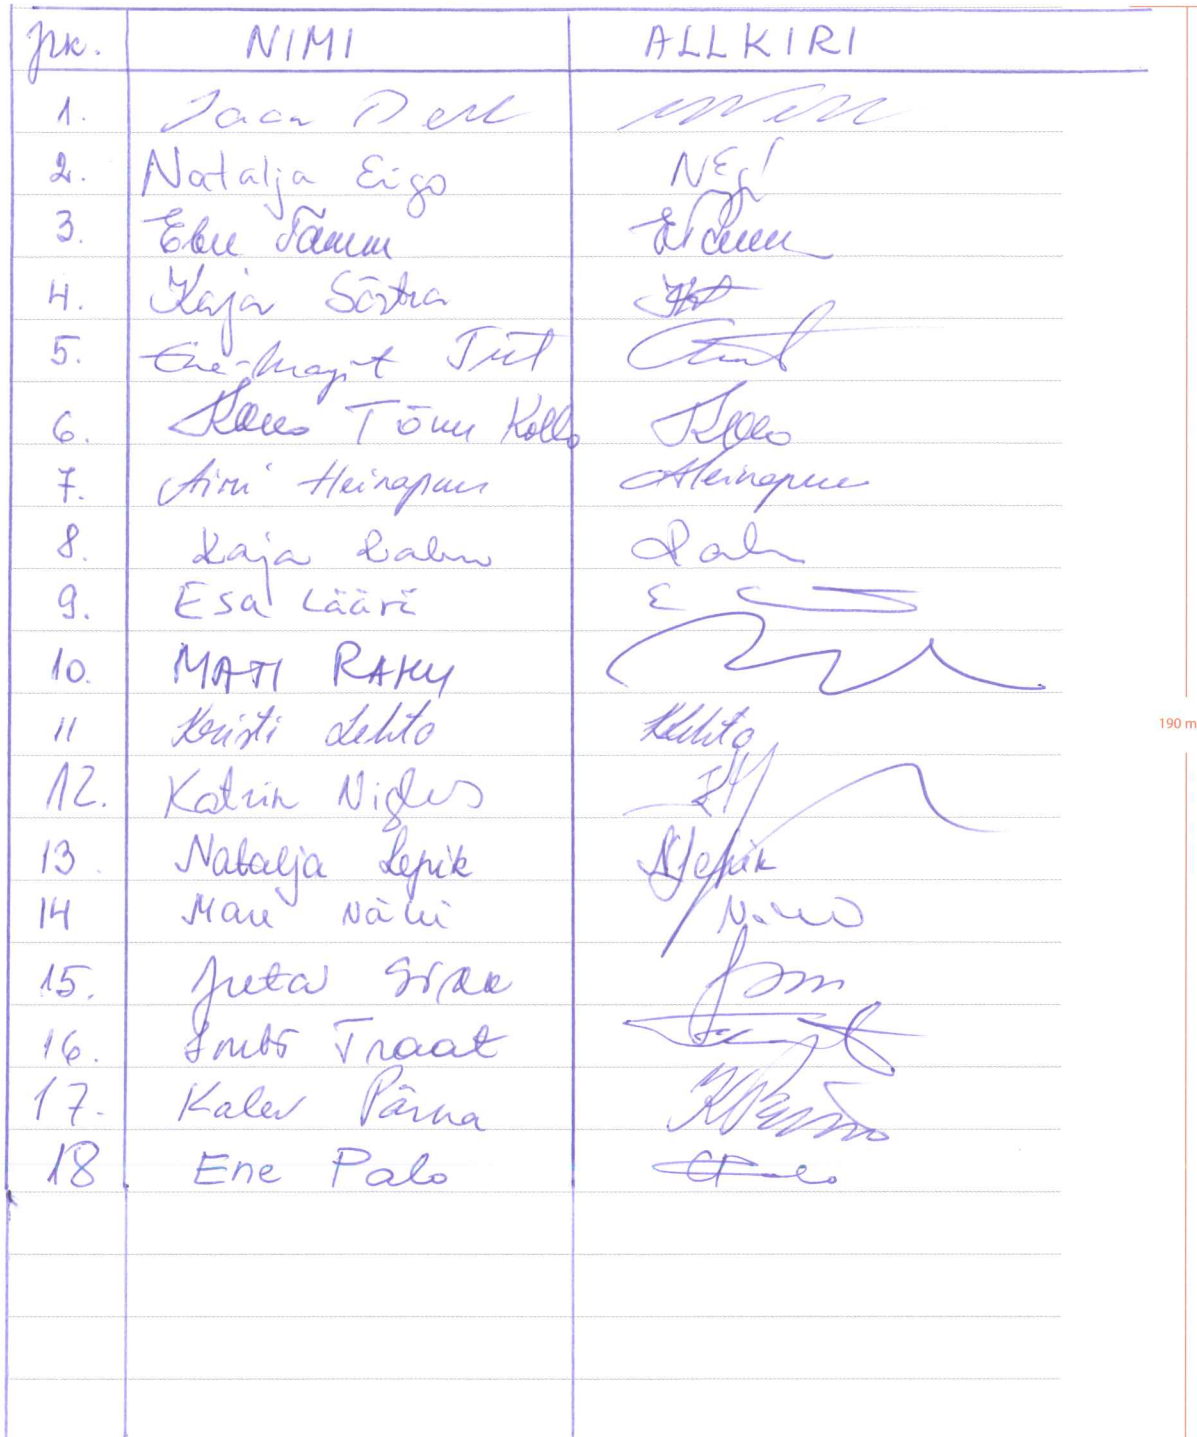 jrk. NIMI ALLKIRI
1. Jaan
2. Natalja Eigo
3. Ebu Tamm ETamm
4. Kaja Sõstra
5. Ene-Margit Tiit
6. Tõnu Kollo Kollo
7. Airi Heinapuu Heinapuu
8. Kaja Rahu Rahu
9. Esa Läärä E
10. MATI RAHU
11 Kristi Lehto KLehto
12. Katrin Niglas
13. Natalja Lepik NLepik
14 Mare
15. Juta Sikk
16. Imbi Traat
17. Kalev Pärna KPärna
18 Ene Palo
190 m